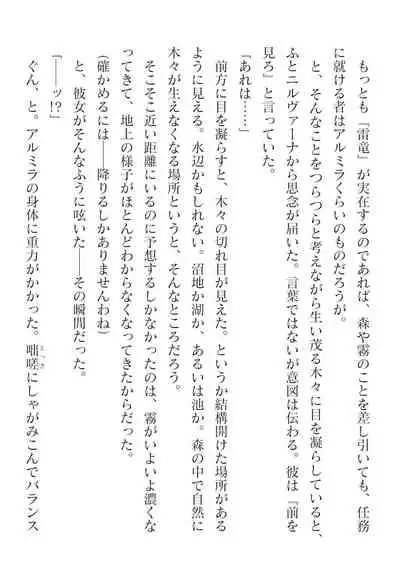 もっとも『雷竜』が実在するのであれば、森や霧のことを差し引いても、任務
に就ける者はアルミラくらいのものだろうが。
と、そんなことをつらつらと考えながら生い茂る木々に目を凝らしていると、
ふとニルヴァーナから思念が届いた。言葉ではないが意図は伝わる。彼は『前を
見ろ』と言っていた。
「あれは……」
前方に目を凝らすと、木々の切れ目が見えた。というか結構開けた場所がある
ように見える。水辺かもしれない。沼地か湖か、あるいは池か。森の中で自然に
木々が生えなくなる場所というと、そんなところだろう。
そこそこ近い距離にいるのに予想するしかなかったのは、霧がいよいよ濃くな
ってきて、地上の様子がほとんどわからなくなってきたからだった。
(確かめるには――降りるしかありませんわね)
と、彼女がそんなふうに呟いた――その瞬間だった。
「――ッ!?」
ぐん、と。アルミラの身体に重力がかかった。咄嗟にしゃがみこんでバランス
とっさ